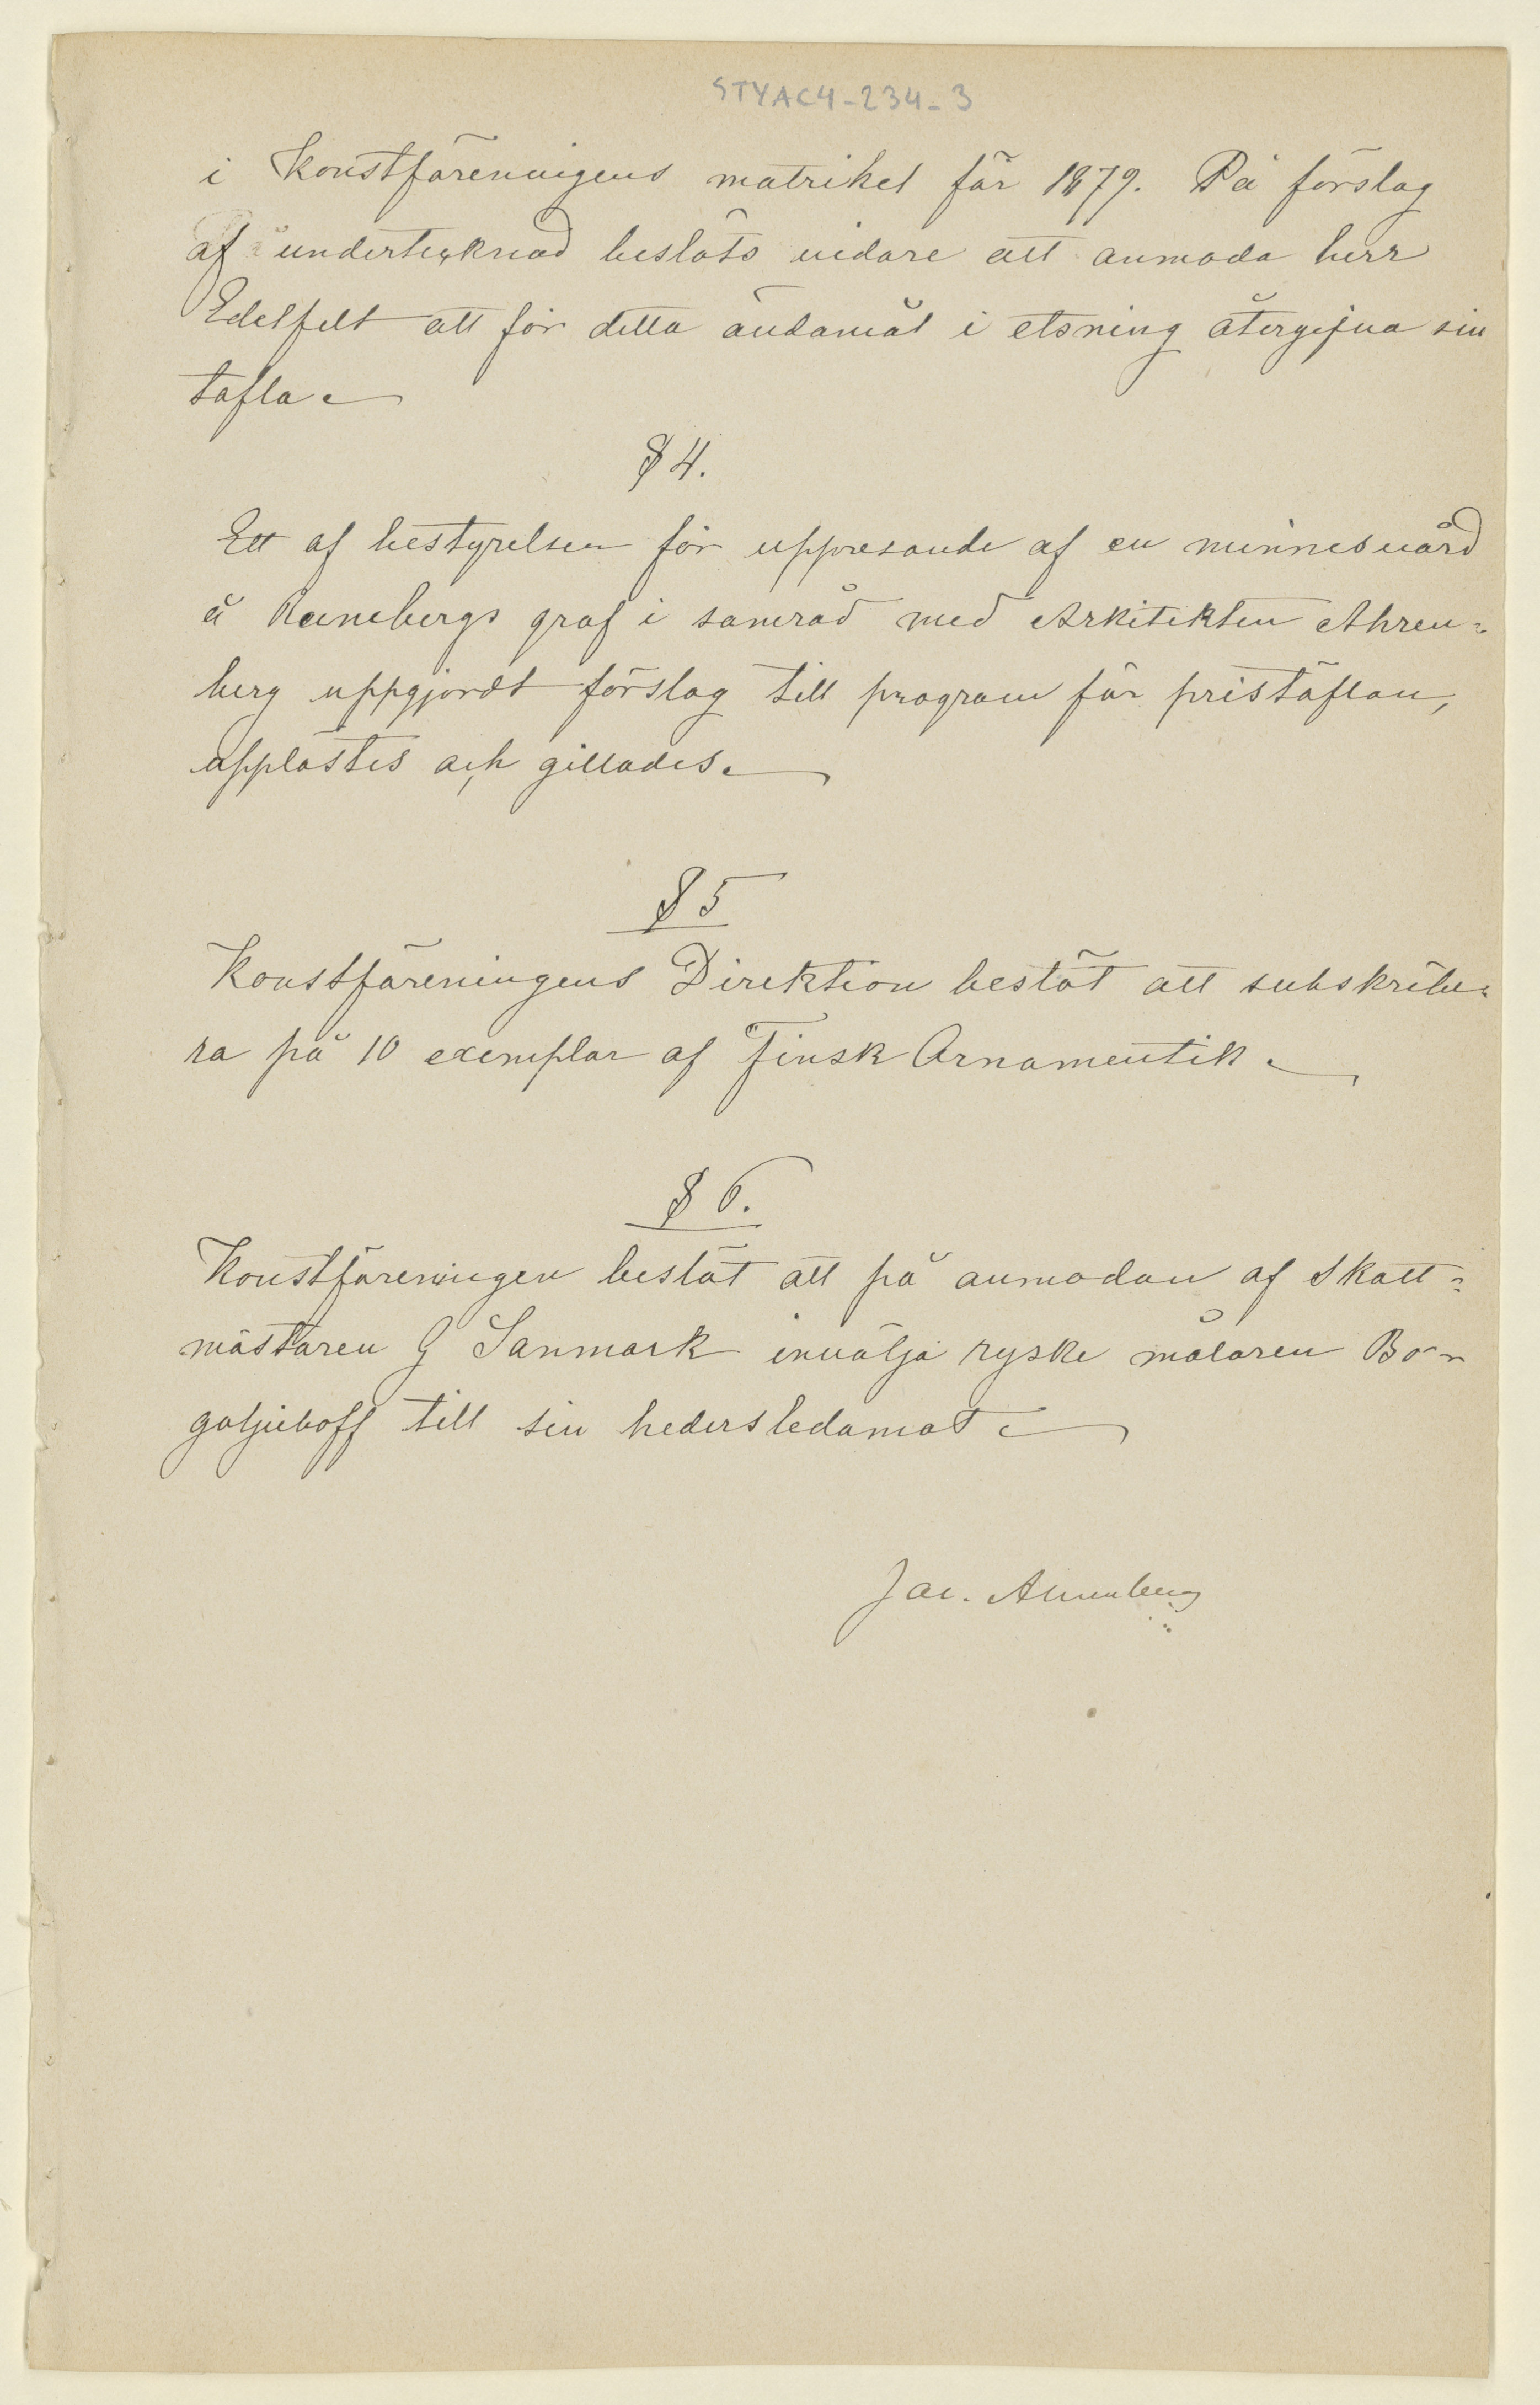 STYAC4-234-3
i Konstföreningens matrikel för 1879. På förslag
af undertecknad beslöts vidare att anmoda herr
Edelfelt att för detta ändamål i etsning återgifva sin
tafla.
§ 4.
Ett af bestyrelsen för uppresande af en minnesvård
å Runebergs graf i samråd med Arkitekten Ahren=
berg uppgjordt förslag till program för pristäflan,
upplästes och gillades.
§ 5
Konstföreningens Direktion beslöt att subskribe=
ra på 10 exemplar af Finsk Ornamentik.
§ 6.
Konstföreningen beslöt att på anmodan af Skatt=
mästaren G Sanmark invälja ryske målaren Bo-
goljuboff till sin hedersledamot.
Jac. Ahrenberg